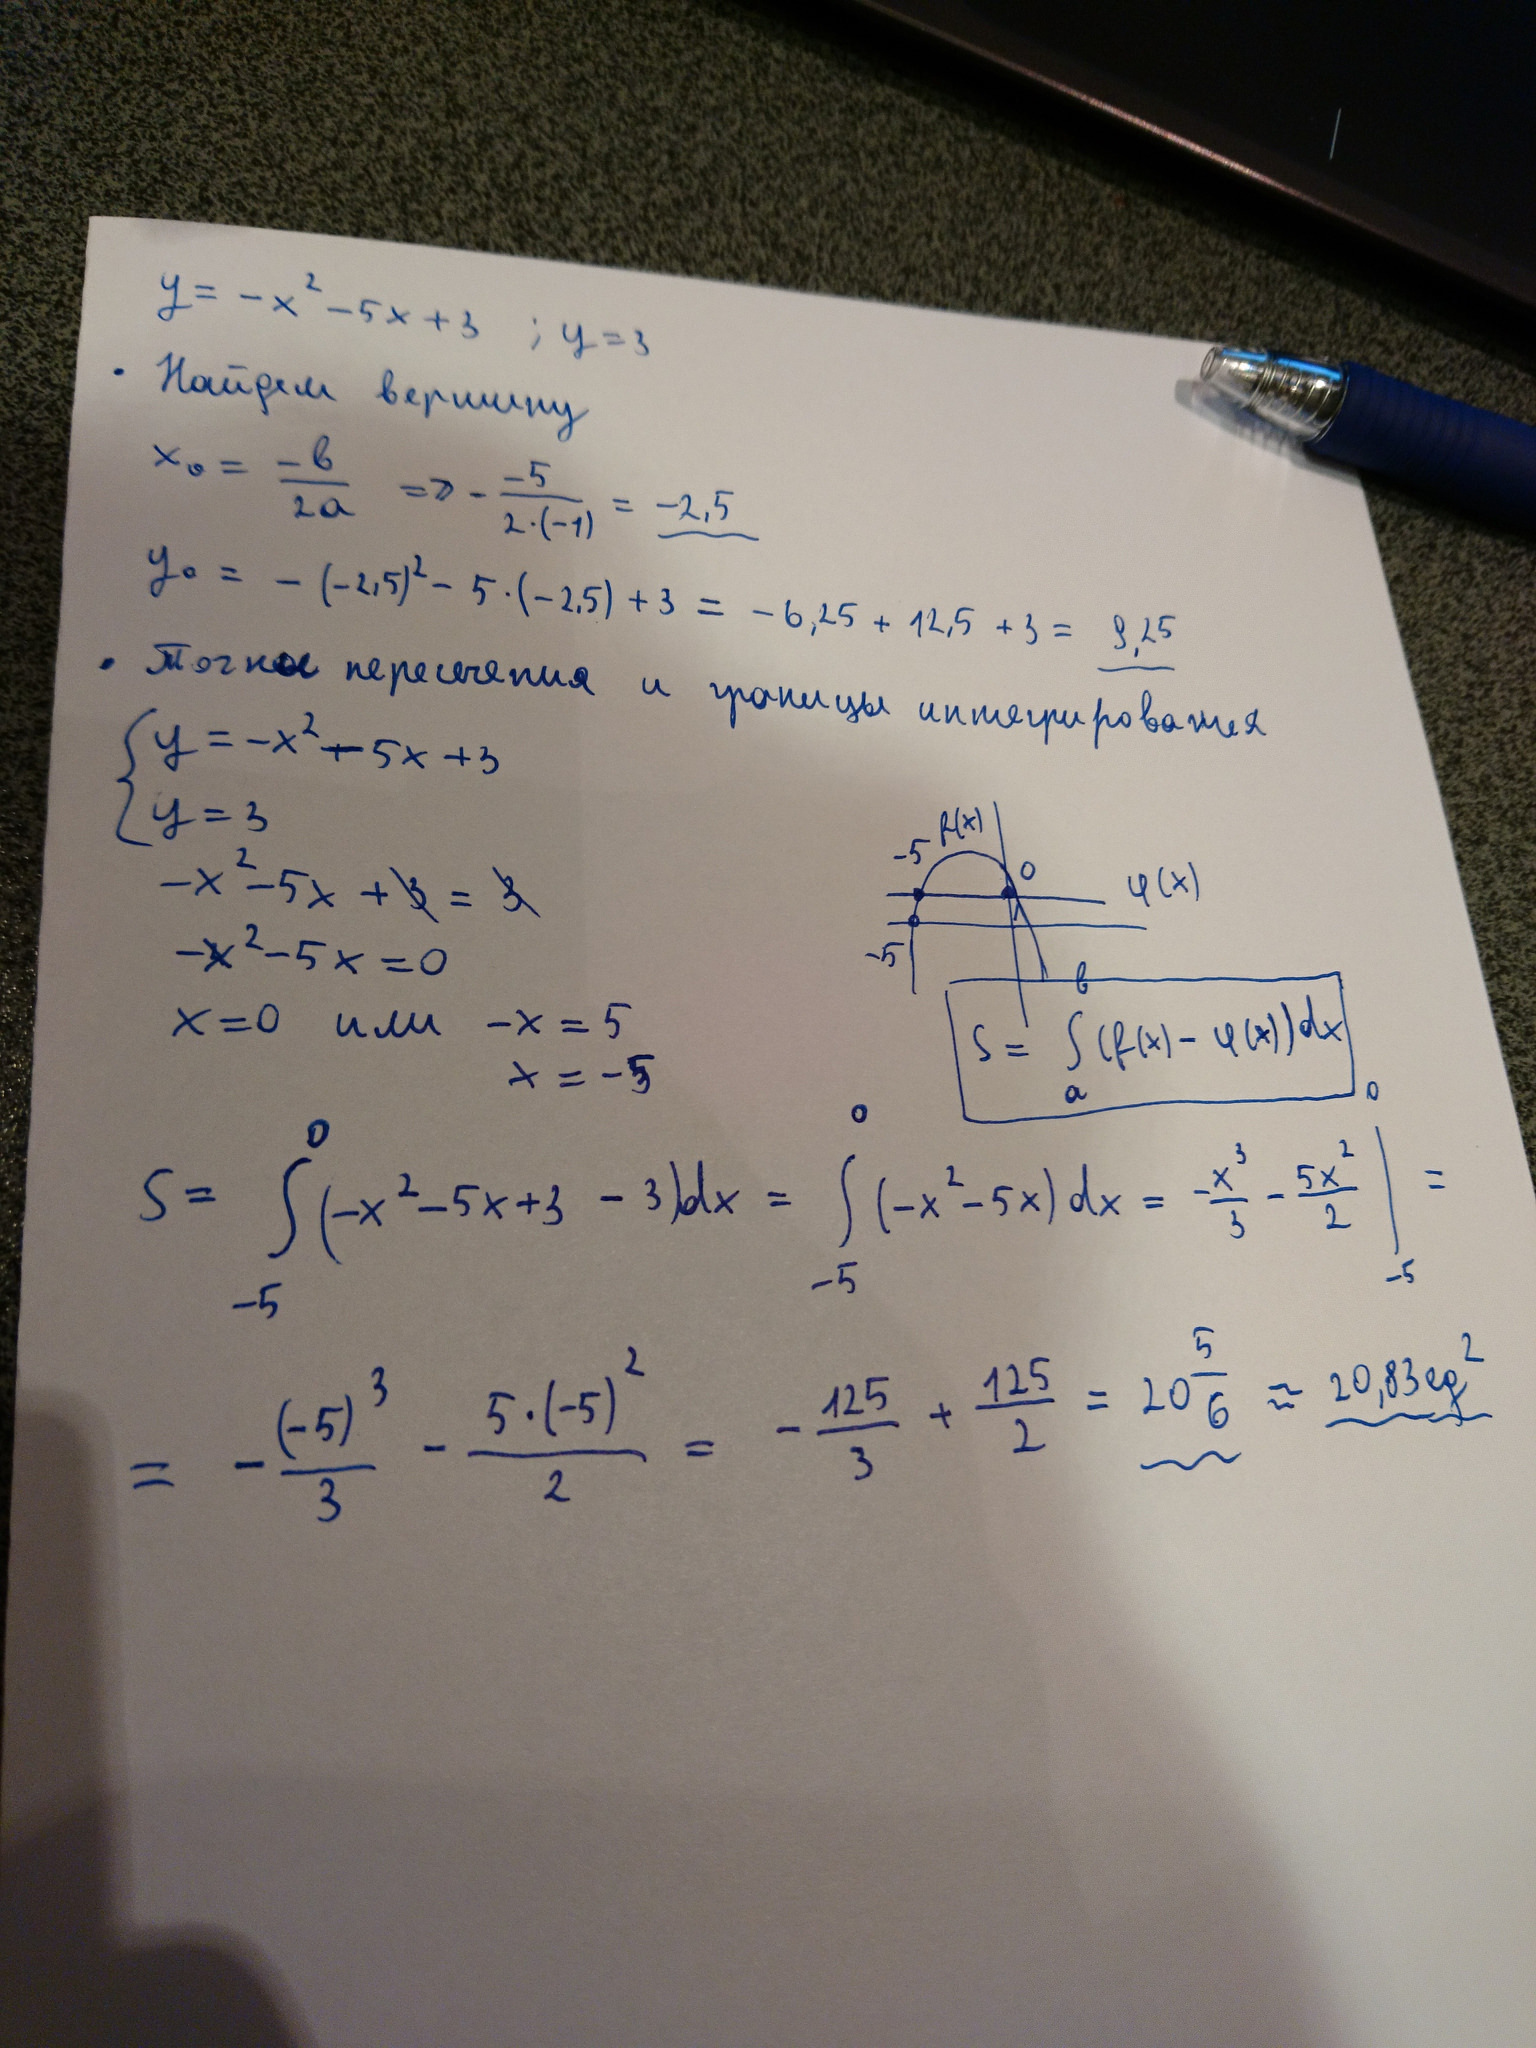 y = -x² - 5x + 3 ; y = 3
• Найдем вершину
x₀ = -b/2a => - -5/2·(-1) = -2,5
y₀ = -(-2,5)² - 5·(-2,5) + 3 = -6,25 + 12,5 + 3 = 9,25
• Точки пересечения и границы интегрирования
{ y = -x² - 5x + 3
y = 3
-x² - 5x + 3 = 3
-x² - 5x = 0
x = 0 или -x = 5
x = -5
f(x)
-5
0
φ(x)
-5
S = ∫ₐᵇ (f(x) - φ(x))dx
S = ∫₋₅⁰ (-x² - 5x + 3 - 3)dx = ∫₋₅⁰ (-x² - 5x)dx = -x³/3 - 5x²/2 |₋₅⁰ =
= - (-5)³/3 - 5·(-5)²/2 = - 125/3 + 125/2 = 20 5/6 ≈ 20,83 ед²